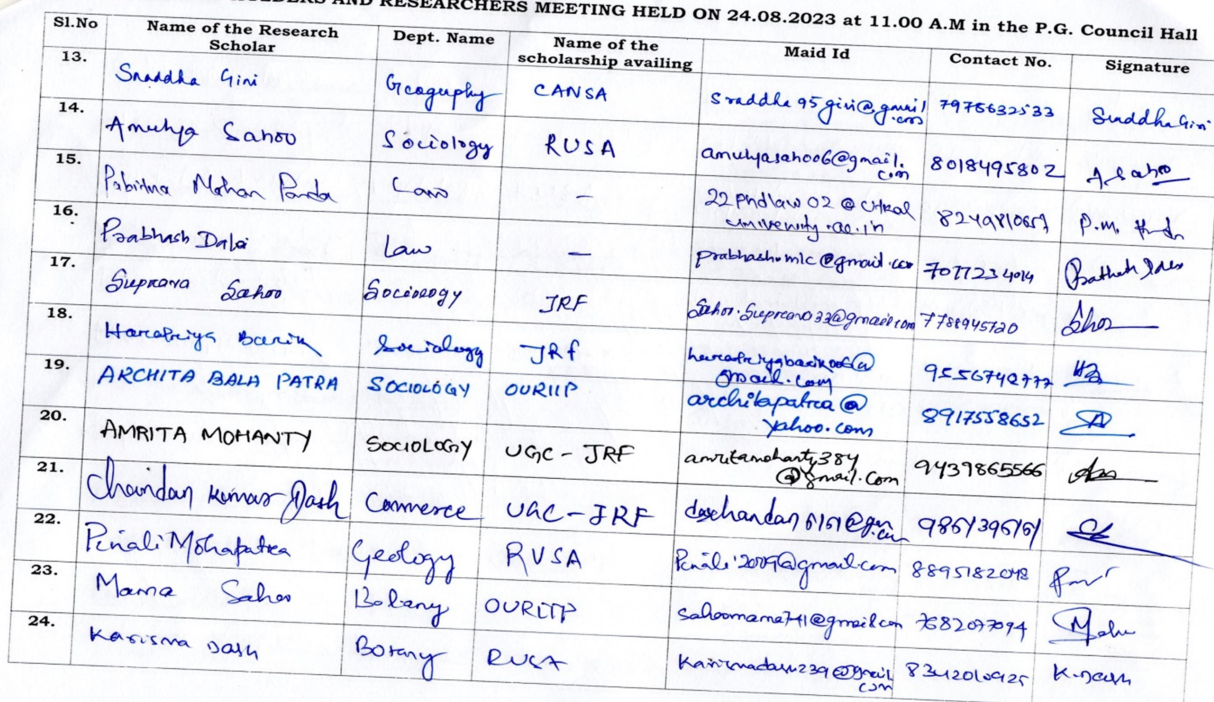 AND RESEARCHERS MEETING HELD ON 24.08.2023 at 11.00 A.M in the P.G. Council Hall
Sl.No Name of the Research Scholar Dept. Name Name of the scholarship availing Maid Id Contact No. Signature
13. Sraddha Giri Geography CANSA sraddha95giri@gmail.com 7975632533 Sraddha Giri
14. Amulya Sahoo Sociology RUSA amulyasahoo6@gmail.com 8018495802 A Sahoo
15. Pabitra Mohan Panda Law - 22phdlaw02@utkaluniversity.ac.in 8249810657 P.M.
16. Prabhash Dalai Law - prabhashomlc@gmail.com 7077234014
17. Suprava Sahoo Sociology JRF 7786945720
18. Harapriya Barik Sociology JRF 9556742777
19. ARCHITA BALA PATRA SOCIOLOGY OURIIP architapatra@yahoo.com 8917558652
20. AMRITA MOHANTY SOCIOLOGY UGC-JRF amritamohanty384@gmail.com 9439865566
21. Chandan Kumar Dash Commerce UGC-JRF 9861396161
22. Pinali Mohapatra Geology RUSA 8895182048
23. Mama Sahoo Botany OURIIP sahoomama741@gmail.com 7682097094
24. Karisma Dash Botany RUSA karismadash239@gmail.com K. Dash